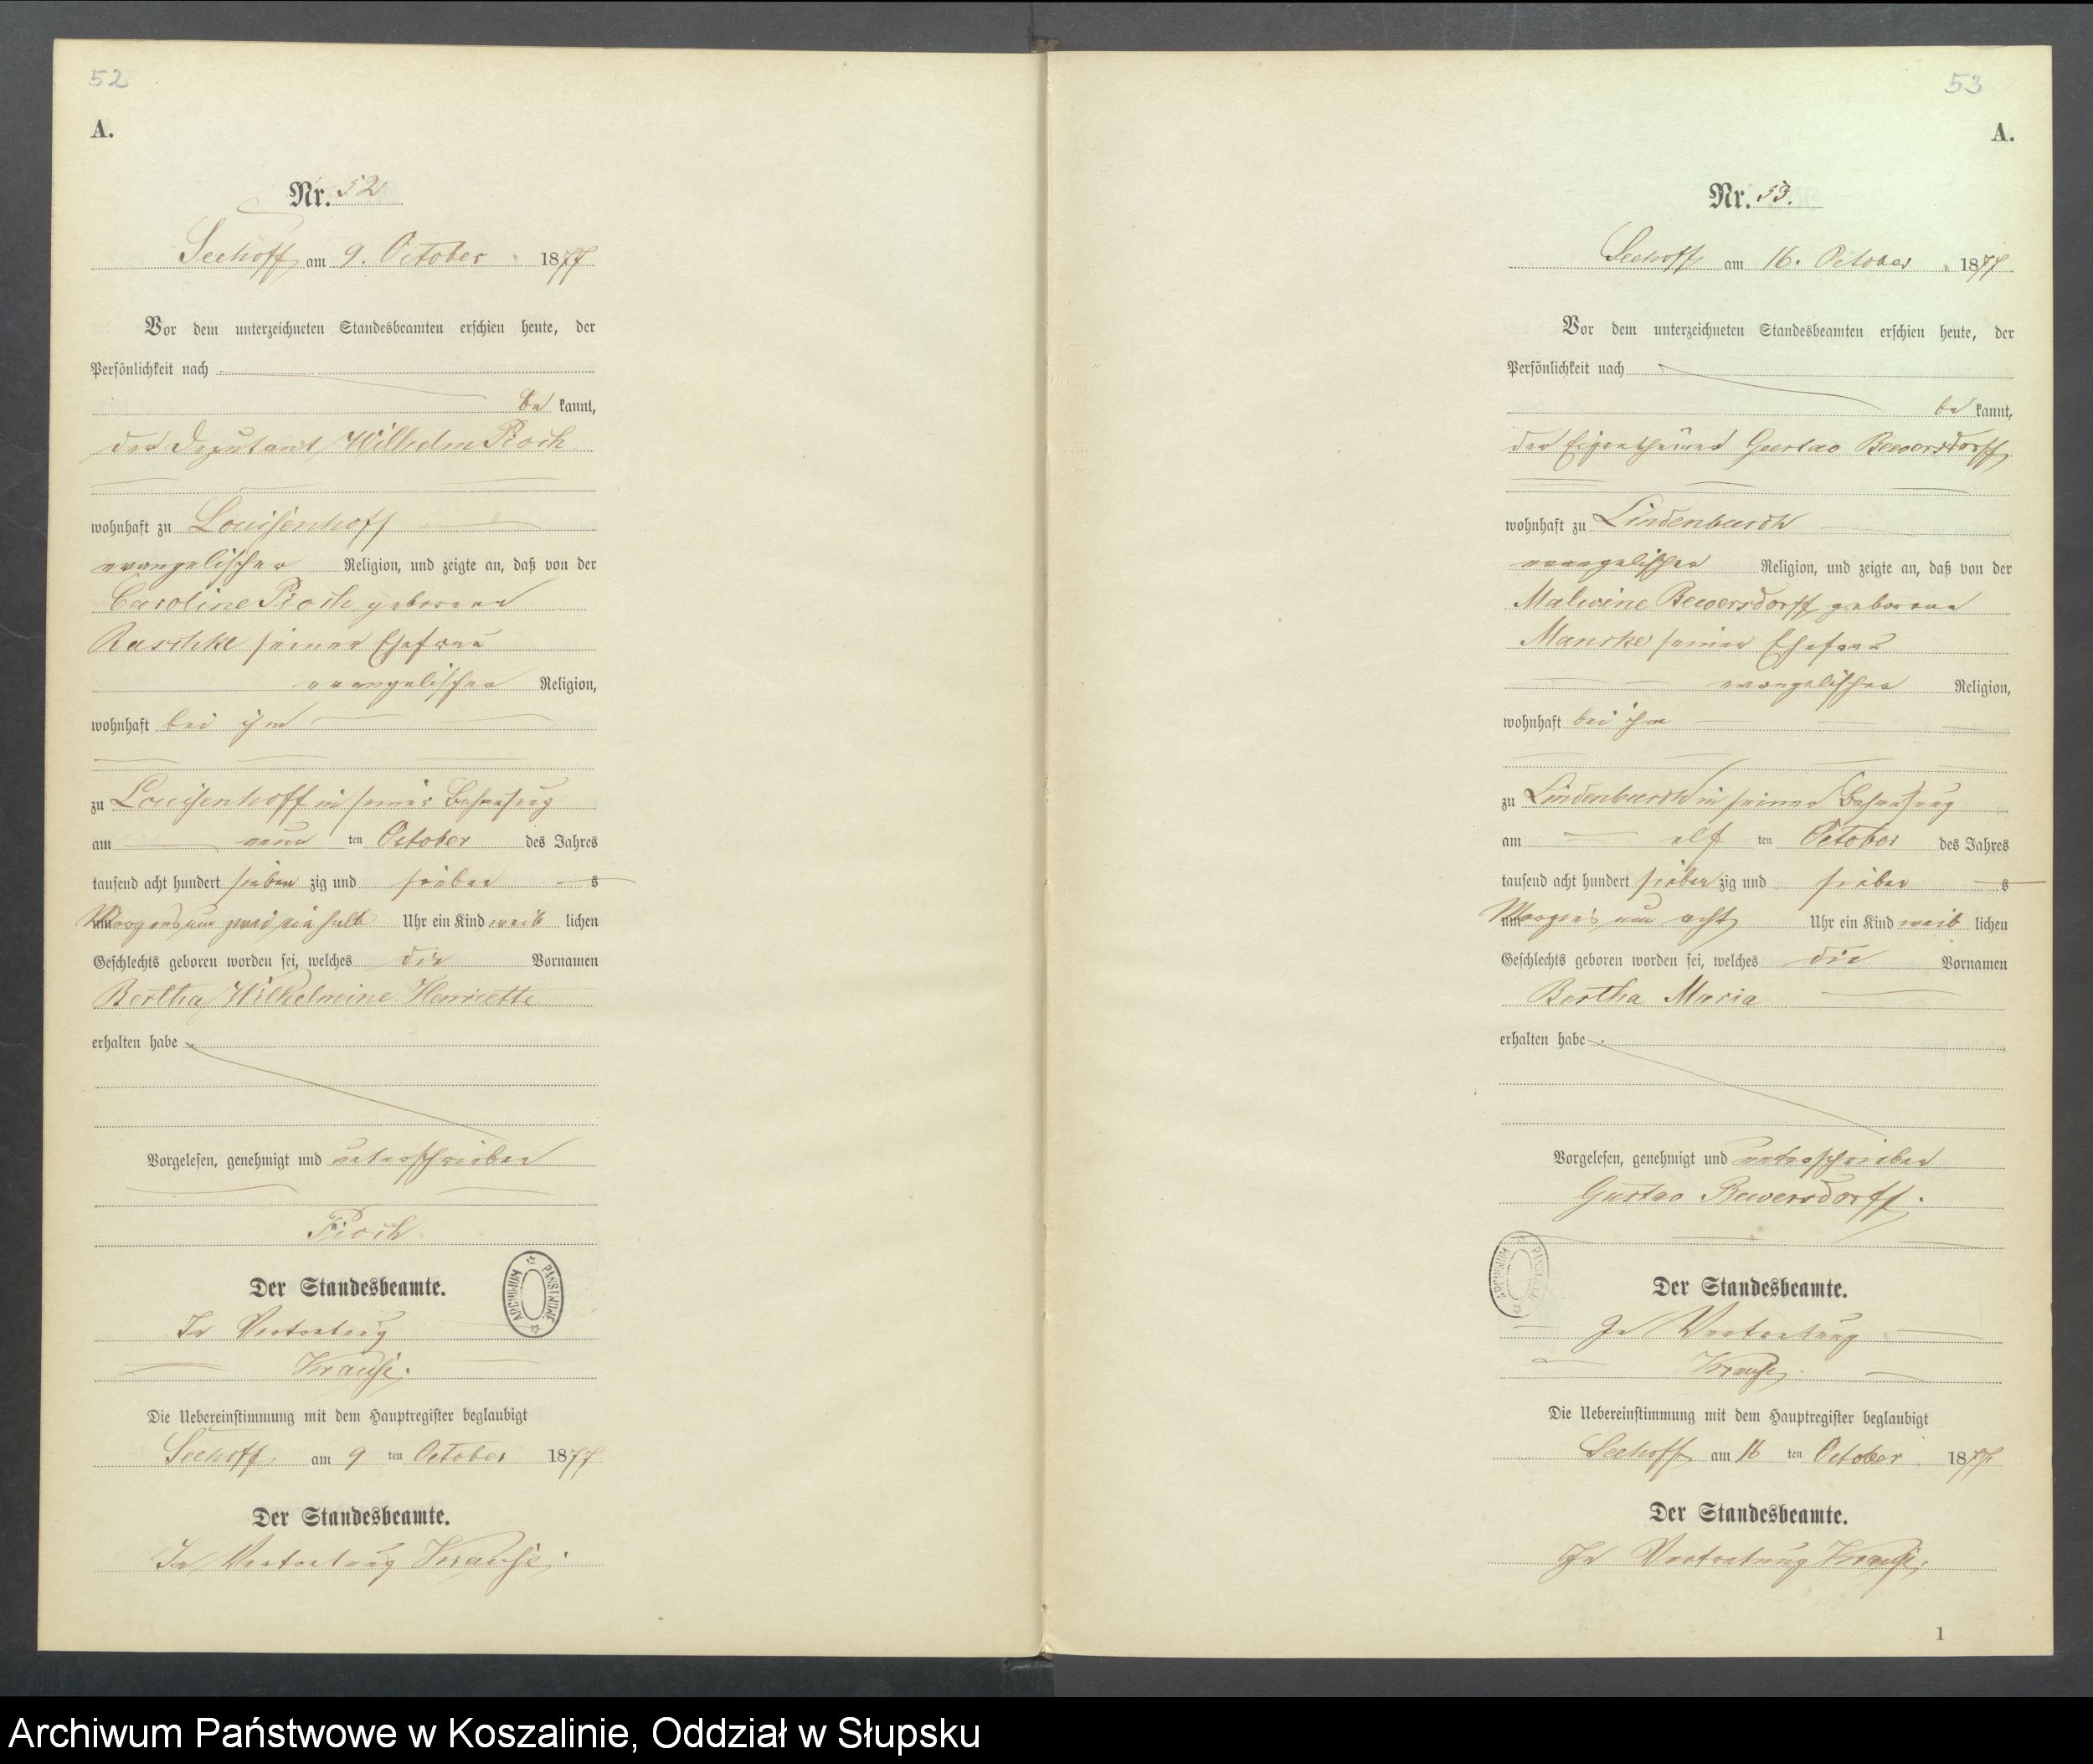 52
A.
Nr. 52
Seehoff am 9. October 1877
Vor dem unterzeichneten Standesbeamten erschien heute, der
Persönlichkeit nach
be kannt,
der Deputant Wilhelm Pioch
wohnhaft zu Louisenhoff
evangelischer Religion, und zeigte an, daß von der
Caroline Pioch geborene
Raschke seiner Ehefrau
evangelischer Religion,
wohnhaft bei ihm
zu Louisenhoff in seiner Behausung
am neun ten October des Jahres
tausend acht hundert sieben zig und sieben s
Morgens um zwei ein halb Uhr ein Kind weib lichen
Geschlechts geboren worden sei, welches die Vornamen
Bertha Wilhelmine Henriette
erhalten habe
Vorgelesen, genehmigt und unterschrieben
Pioch
Der Standesbeamte.
In Vertretung
Krause.
Die Uebereinstimmung mit dem Hauptregister beglaubigt
Seehoff am 9 ten October 1877
Der Standesbeamte.
In Vertretung Krause.
ARCHIWUM PAŃSTWOWE
53
A.
Nr. 53.
Seehoff am 16. October 1877
Vor dem unterzeichneten Standesbeamten erschien heute, der
Persönlichkeit nach
be kannt,
der Eigenthümer Gustav Bewersdorff
wohnhaft zu Lindenbusch
evangelischer Religion, und zeigte an, daß von der
Malwine Bewersdorff geborene
Manske seiner Ehefrau
evangelischer Religion,
wohnhaft bei ihm
zu Lindenbusch in seiner Behausung
am elf ten October des Jahres
tausend acht hundert sieben zig und sieben s
Morgens um acht Uhr ein Kind weib lichen
Geschlechts geboren worden sei, welches die Vornamen
Bertha Maria
erhalten habe
Vorgelesen, genehmigt und unterschrieben
Gustav Bewersdorff.
Der Standesbeamte.
In Vertretung
Krause
Die Uebereinstimmung mit dem Hauptregister beglaubigt
Seehoff am 16 ten October 1877
Der Standesbeamte.
In Vertretung Krause.
1
Archiwum Państwowe w Koszalinie, Oddział w Słupsku